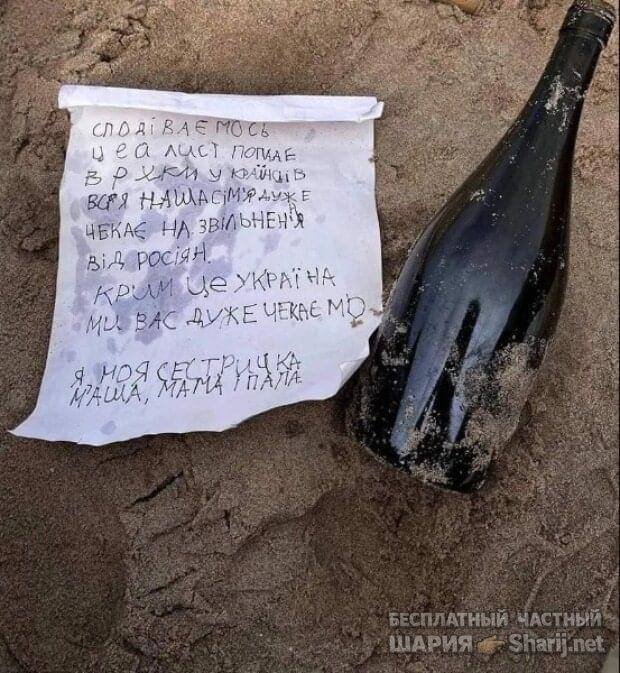 СПОДІВАЄМОСЬ
ЦЕЙ ЛИСТ ПОПАДЕ
В РУКИ УКРАЇНЦІВ
ВСЯ НАША СІМ'Я ДУЖЕ
ЧЕКАЄ НА ЗВІЛЬНЕННЯ
ВІД РОСІЯН.
КРИМ ЦЕ УКРАЇНА
МИ ВАС ДУЖЕ ЧЕКАЄМО
Я, МОЯ СЕСТРИЧКА
МАША, МАМА І ПАПА.
БЕСПЛАТНЫЙ ЧАСТНЫЙ
ШАРИЯ Sharij.net